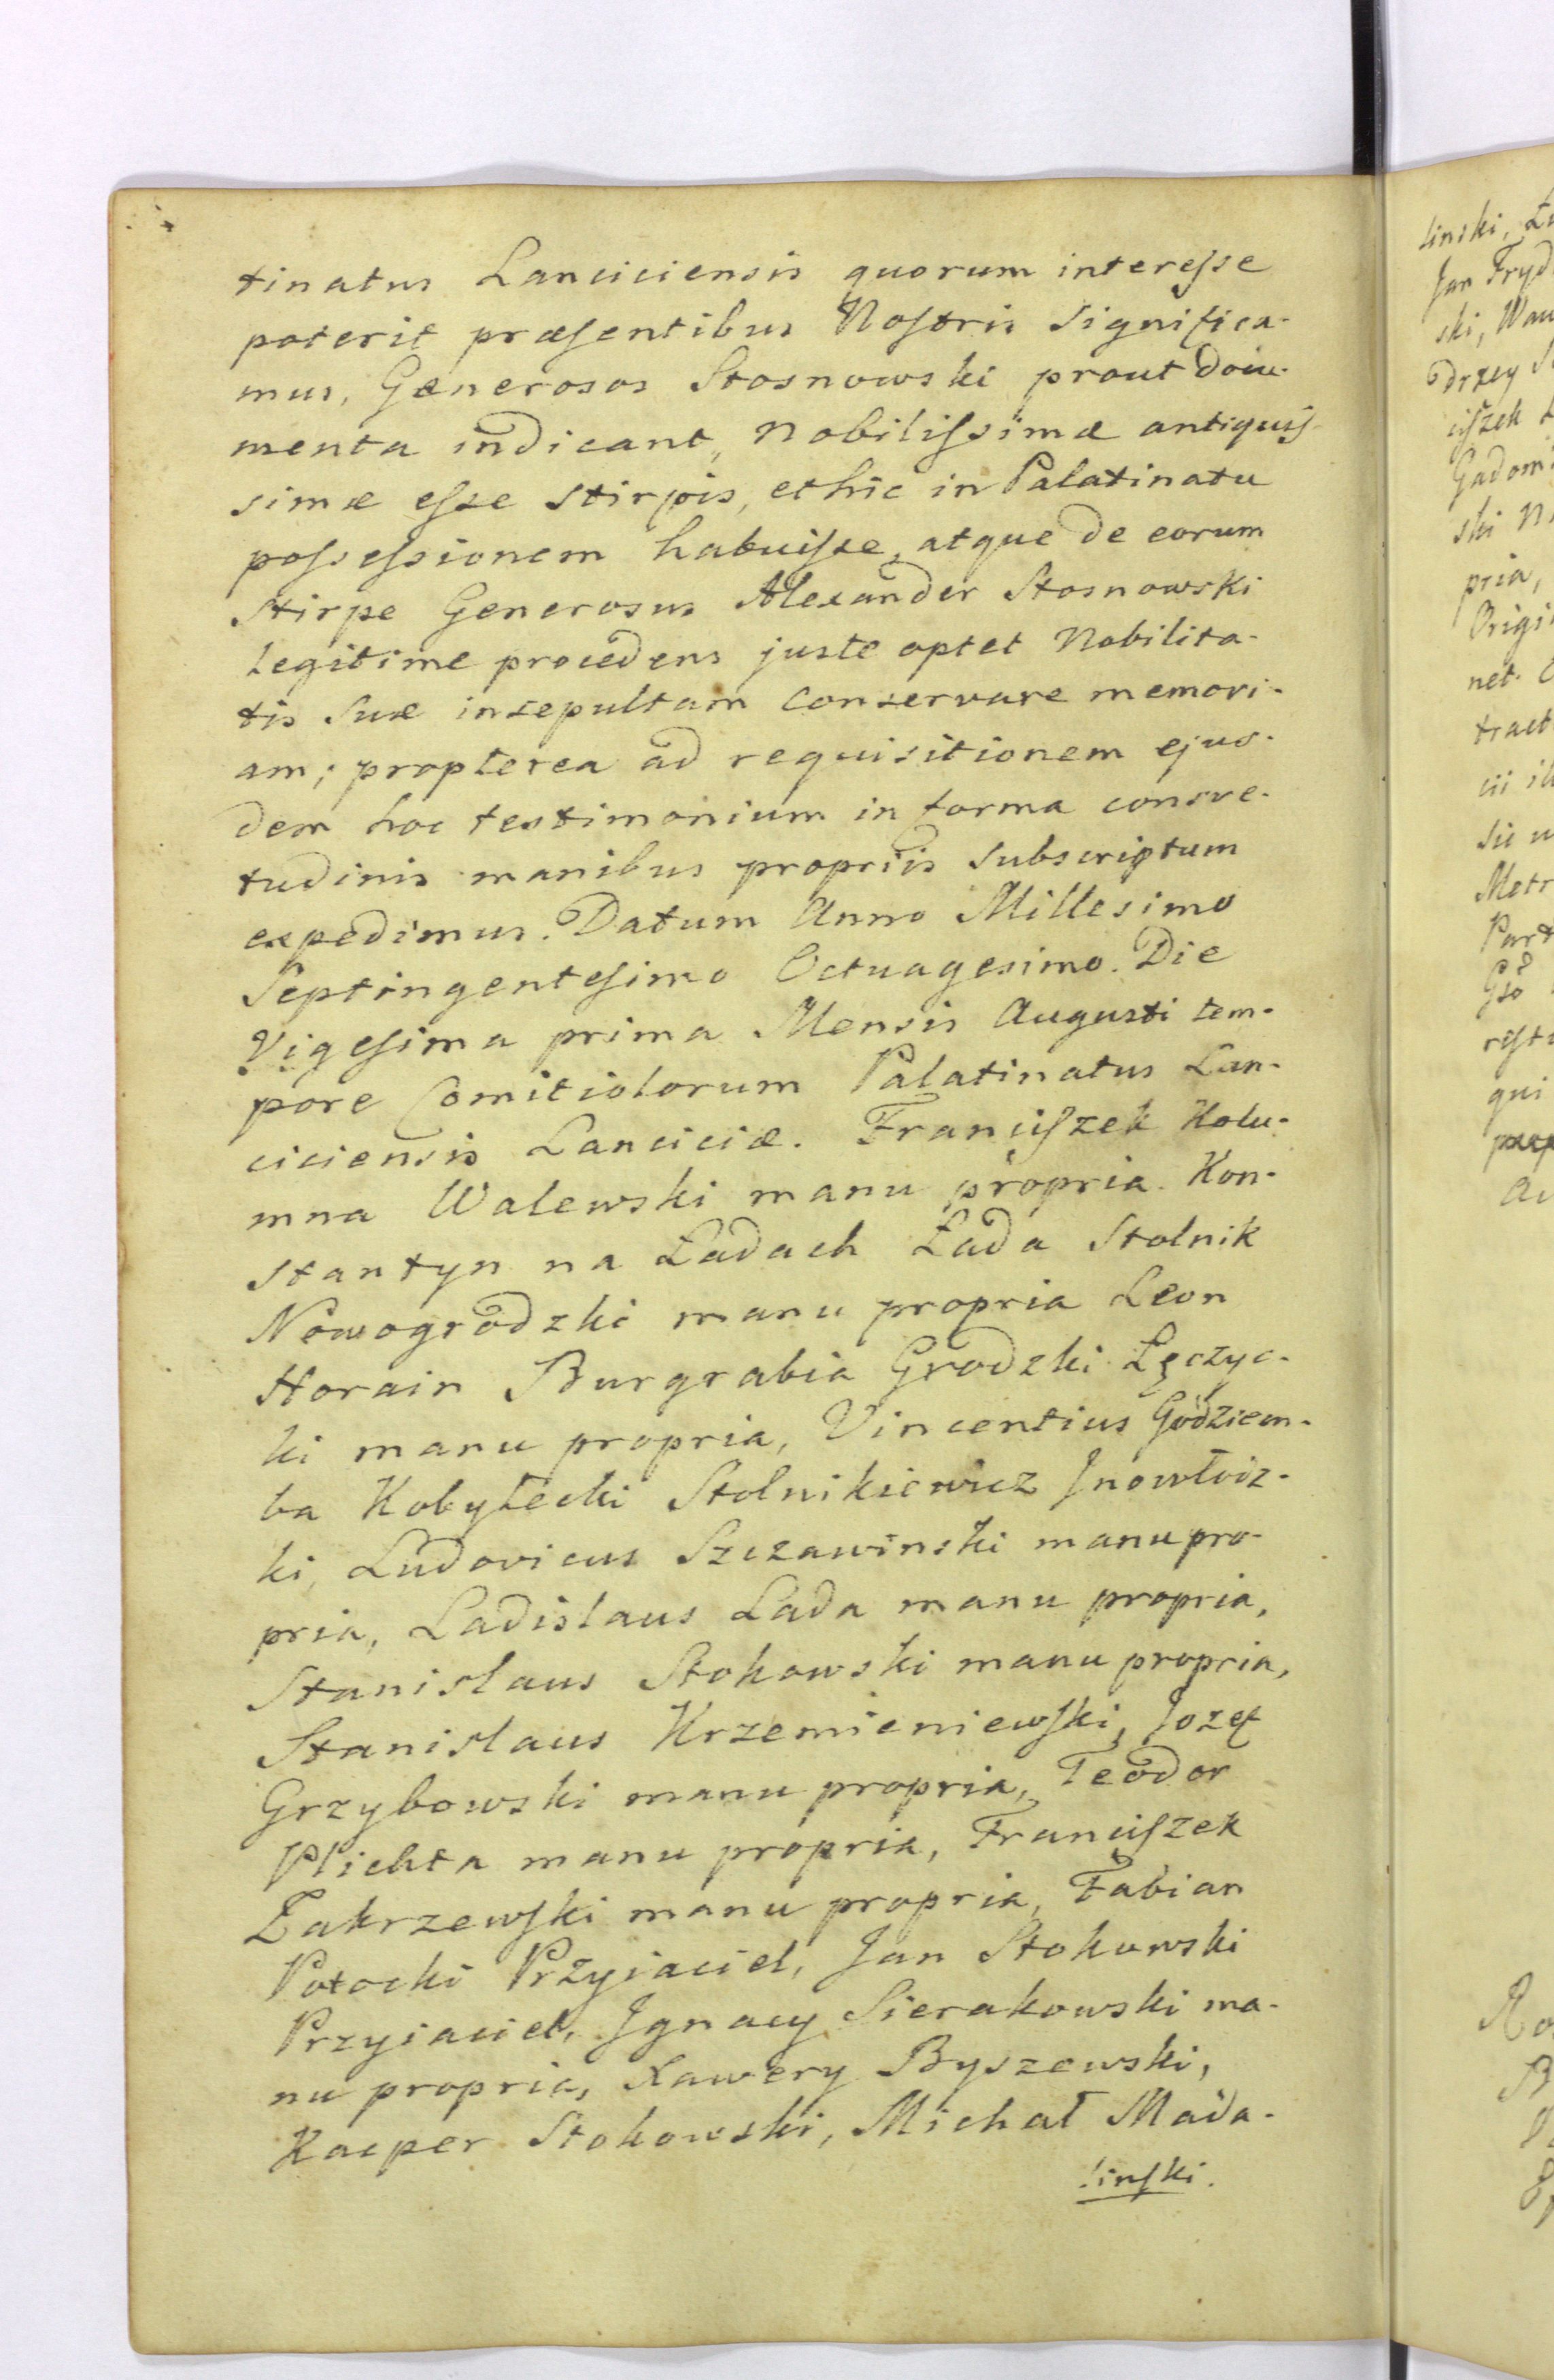 tinatus Lanciciensis quorum interesse
poterit præsentibus Nostris Significa-
mus, Generosos Stosnowski prout docu-
menta indicant, Nobilissimæ antiquis-
simæ esse Stirpis, et hic in Palatinatu
possessionem habuisse, atque de eorum
Stirpe Generosus Alexander Stosnowski
legitime procedens juste optet Nobilita-
tis Suæ insepultam conservare memori-
am; propterea ad requisitionem ejus-
dem hoc testimonium in forma consve-
tudinis manibus propriis subscriptum
expedimus. Datum Anno Millesimo
Septingentesimo Octuagesimo. Die
Vigesima prima Mensis Augusti tem-
pore Comitiolorum Palatinatus Lan-
ciciensis Lanciciæ. Franciszek Kolu-
mna Walewski manu propria. Kon-
stantyn na Ładach Łada Stolnik
Nowogrodzki manu propria Leon
Horain Burgrabia Grodzki Łęczyc-
ki manu propria, Vincentius Godziem-
ba Kobyłecki Stolnikiewicz Inowłodz-
ki, Ludovicus Szczawinski manu pro-
pria, Ladislaus Lada manu propria,
Stanislaus Stokowski manu propria,
Stanislaus Krzemieniewski, Jozef
Grzybowski manu propria, Teodor
Plichta manu propria, Franciszek
Zakrzewski manu propria, Fabian
Potocki Przyiaciel, Jan Stokowski
Przyiaciel, Ignacy Sierakowski ma-
nu propria, Xawery Byszewski,
Kacper Stokowski, Michał Mada-
linski.
linski,
Jan Fryd
ski,
drzey
ciszek
Gadom
ski
pria,
Origi
net.
tract
cii
Metr
Part
qui